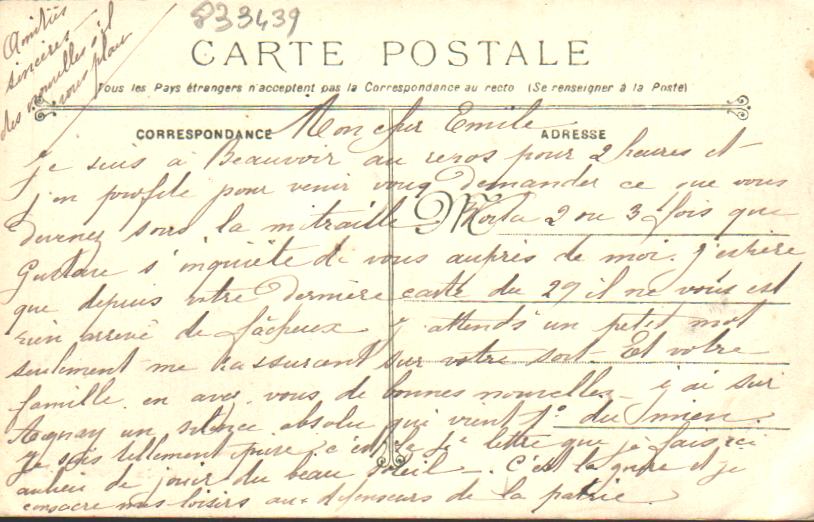 833439
Amitiés
sincères
des nouvelles s'il
vous plait
CARTE POSTALE
Tous les Pays étrangers n'acceptent pas la Correspondance au recto (Se renseigner à la Poste)
CORRESPONDANCE
ADRESSE
Mon cher Emile
Je suis à Beauvoir au repos pour 2 heures et
j'en profite pour venir vous demander ce que vous
devenez sous la mitraille 2 ou 3 fois que
Gustave s'inquiète de vous auprès de moi. J'espère
que depuis votre dernière carte du 29 il ne vous est
rien arrivé de fâcheux j'attends un petit mot
seulement me rassurant sur votre sort. Et votre
famille en avez vous de bonnes nouvelles - j'ai sur
un silence absolu qui vient du mien.
Je suis tellement c'est la lettre que je fais ici
au lieu de jouir du beau soleil - C'est la guerre et je
consacre mes loisirs aux défenseurs de la patrie.